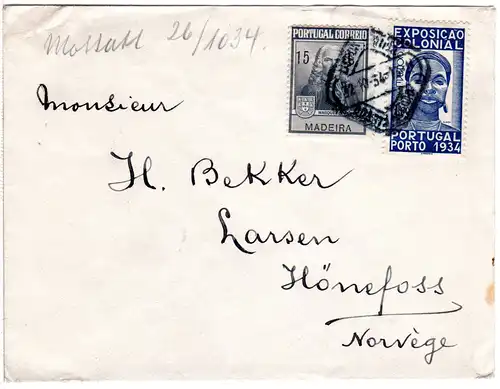 Mottatt 26/1034.
PORTUGAL CORREIO
15
MARQUES
MADEIRA
EXPOSIÇÃO
COLONIAL
PORTUGAL
PORTO 1934
Monsieur
H. Bekker
Larsen
Hönefoss
Norvège